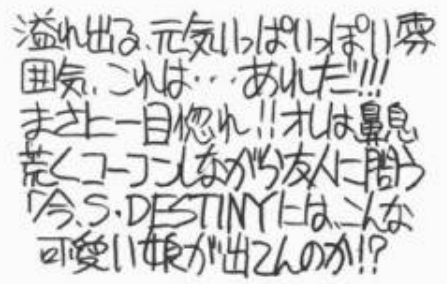 溢れ出る、元気いっぱいっぽい雰
囲気、これは・・・あれだ!!!
まさに一目惚れ!!オレは鼻息
荒くコーフンしながら友人に問う
「今、S・DESTINYには、こんな
可愛い娘が出てんのか!?